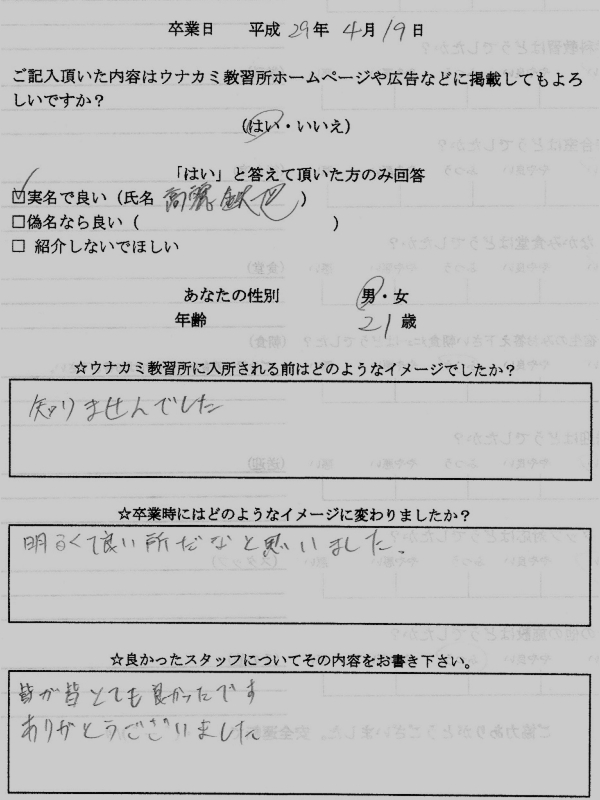 卒業日 平成29年4月19日
ご記入頂いた内容はウナカミ教習所ホームページや広告などに掲載してもよろ
しいですか?
(はい・いいえ)
「はい」と答えて頂いた方のみ回答
☑実名で良い(氏名 高麗鉄也)
□偽名なら良い( )
□ 紹介しないでほしい
あなたの性別 男・女
年齢 21歳
☆ウナカミ教習所に入所される前はどのようなイメージでしたか?
知りませんでした
☆卒業時にはどのようなイメージに変わりましたか?
明るくて良い所だなと思いました。
☆良かったスタッフについてその内容をお書き下さい。
皆が皆とても良かったです
ありがとうございました